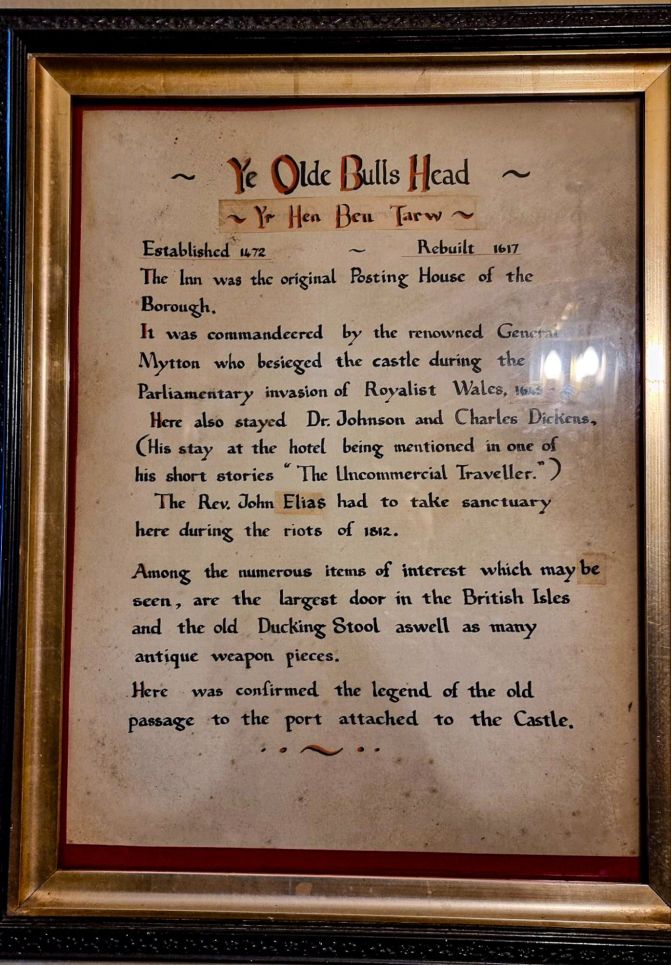 ~ Ye Olde Bulls Head ~
~ Yr Hen Ben Tarw ~
Established 1472 ~ Rebuilt 1617
The Inn was the original Posting House of the
Borough.
It was commandeered by the renowned General
Mytton who besieged the castle during the
Parliamentary invasion of Royalist Wales,
Here also stayed Dr. Johnson and Charles Dickens,
(His stay at the hotel being mentioned in one of
his short stories " The Uncommercial Traveller.")
The Rev. John Elias had to take sanctuary
here during the riots of 1812.
Among the numerous items of interest which may be
seen, are the largest door in the British Isles
and the old Ducking Stool aswell as many
antique weapon pieces.
Here was confirmed the legend of the old
passage to the port attached to the Castle.